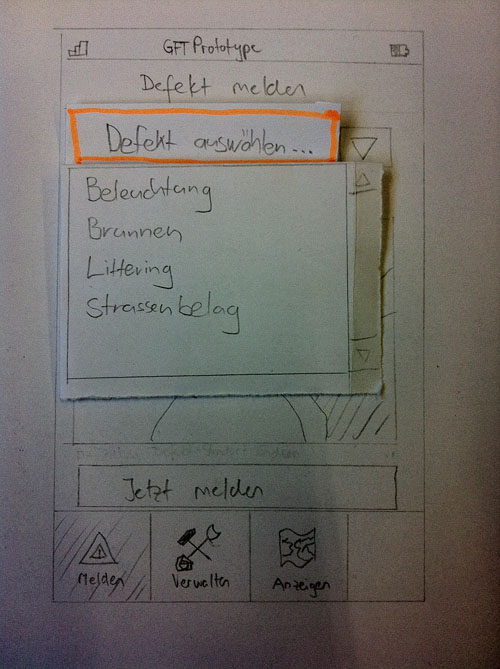 GFT Prototype
Defekt melden
Defekt auswählen...
Beleuchtung
Brunnen
Littering
Strassenbelag
Jetzt melden
Melden
Verwalten
Anzeigen